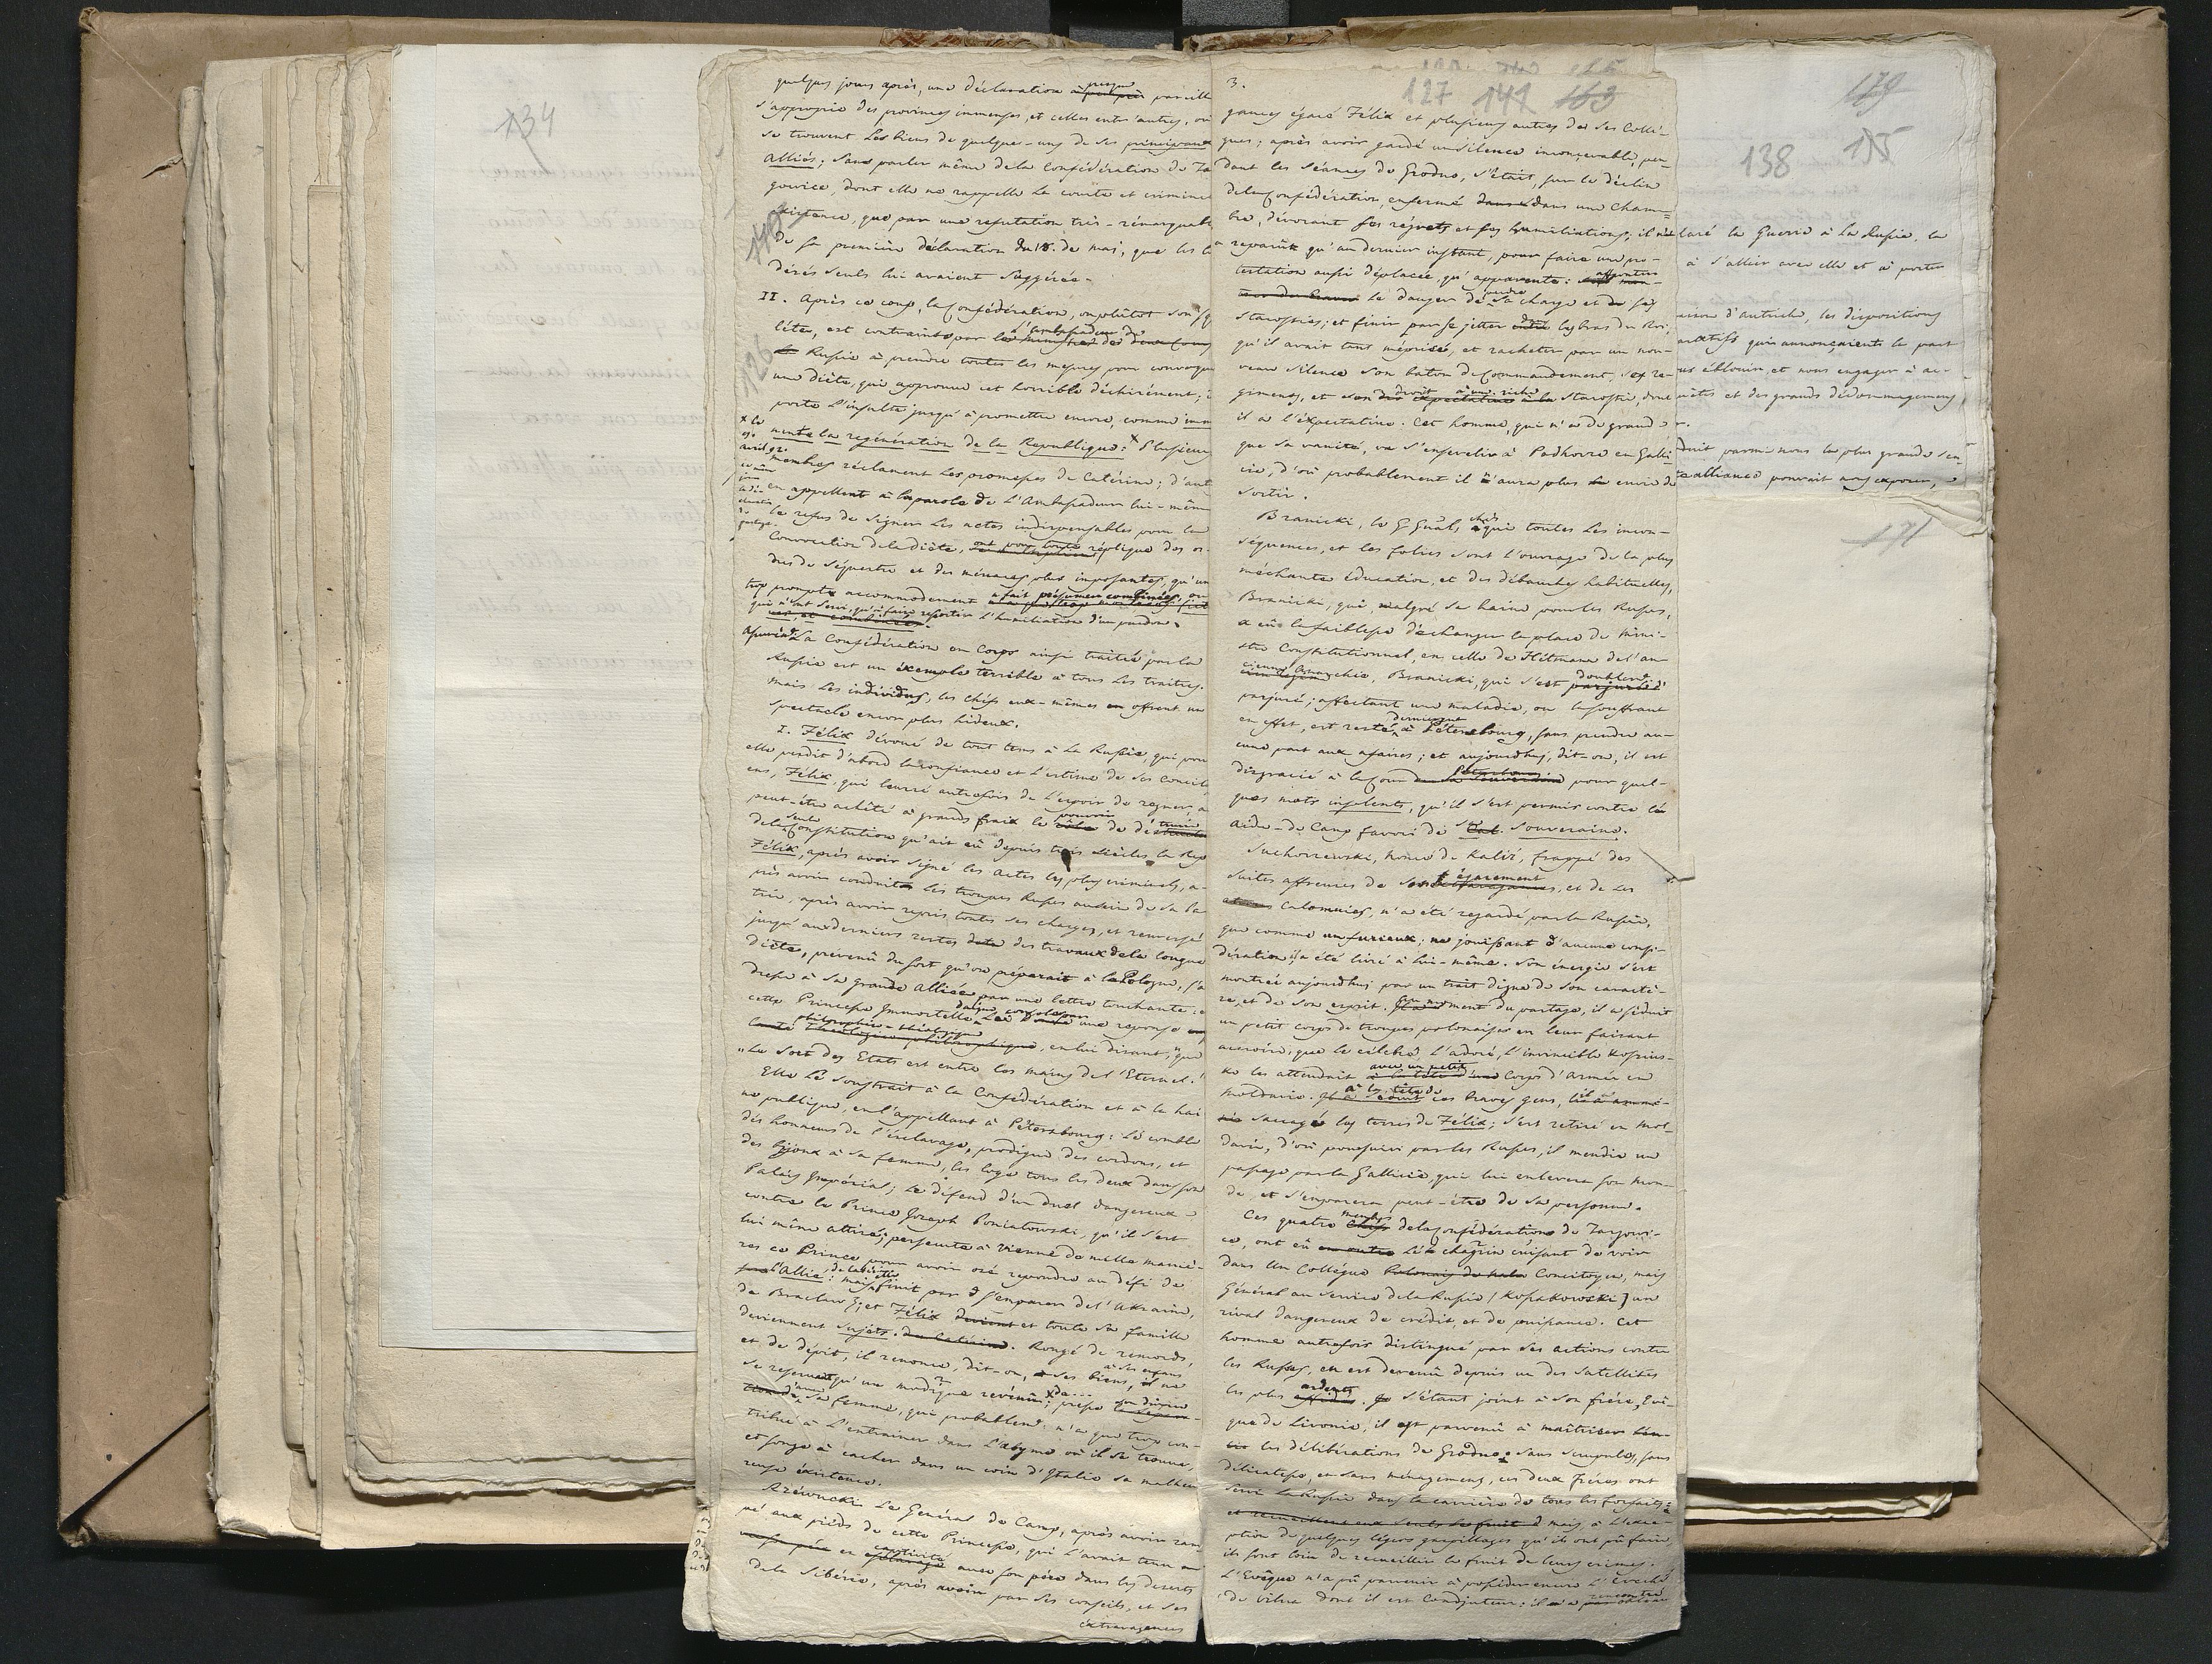 134
quelques jours après, une déclaration presque pareille
s'approprie des provinces immenses, et celles entr'autres, où
se trouvent les biens de quelque-uns de ses principaux
Alliés; sans parler même de la Confédération de Ta
govice, dont elle ne rappelle la courte et criminel
existence, que par une refutation très-rémarquabl
de sa première déclaration du 18. de mai, que les
dérés seuls lui avaient suggérée.
140
II. Après ce coup, la Confédération, ou plûtôt son sq
léte, est contrainte par l'ambassadeur de
Russie à prendre toutes les mesures pour convoque
126
une diète, qui approuve cet horrible déchirément;
porte l'insulte jusqu'à promettre encore, comme imm
nente la regénération de la Republique: Plusieurs
membres réclament les promesses de Catérine; d'aut
en appellent à la parole de L'Ambassadeur lui-même
le refus de signer les actes indispensables pour la
Convocation de la diète, réplique des or-
dres de séquestre et des ménaces plus imposantes, qu'un
trop prompt accommodement a fait présumer combinées, ou
qui n'ont servi, qu'à faire ressortir l'humiliation d'un pardon.
La Confédération en Corps ainsi traitée par la
Russie est un éxemple terrible à tous les traîtres.
Mais les individus, les chéfs eux-mêmes en offrent un
spectacle encor plus hideux.
I. Félix dévoué de tout tems à la Russie, qui pour
elle perdit d'abord la confiance et l'estime de ses Concito
ens, Félix, qui leurré autrefois de l'espoir de regner, a
peut-être achêté à grands fraix le pouvoir de détruire
de la seule Constitution qu'ait eû depuis trois siécles la Rep
Félix, après avoir signé les actes les plus criminels, a-
près avoir conduit les troupes Russes au sein de sa Pa
trie, après avoir repris toutes ses charges, et renversé
jusqu'aux derniers restes des travaux de la longue
Diète, prévenû du sort qu'on préparait à la Pologne, s'a
dresse à sa grande Alliée par une lettre touchante:
cette Princesse Immortelle daigne une reponse
philosophico-théologique, en lui disant, "que
"Le Sort des Etats est entre les mains de l'Eternel."
Elle le soustrait à la Confédération et à la hai
ne publique, en l'appellant à Pétersbourg: le comble
des honneurs de l'ésclavage, prodigue des cordons, et
des bijoux à sa femme, les loge tous les deux dans son
Palais Impérial; le défend d'un duel dangereux
contre le Prince Joseph Poniatowski, qu'il s'est
lui même attiré; persécute à Vienne de mille maniè-
res ce Prince pour avoir osé repondre au défi de
l'Allié: mais elle finit par s'emparer de l'Ukraine,
de Braclaw; et Félix et toute sa famille
deviennent sujets. Rongé de remords,
et de dépit, il renonce, dit-on, à ses biens, à ses enfans
se reservant qu'un modique revénû; presse
sa femme, qui probablemt. n'a que trop con-
tribué à l'entrainer dans l'abyme où il se trouve,
et songe à cacher dans un coin d'Italie sa malheu
reuse éxistence.
Rzéwucki le Général de Camp, après avoir ram
pé aux piéds de cette Princesse, qui l'avait tenu
en captivité avec son pére dans les deserts
de la Sibérie, après avoir par ses conseils, et ses
éxtravagances
3.
127 141 163
gances égaré Félix et plusieurs autres de ses Collé-
gues; après avoir gardé un silence inconçevable, pen-
dant les séances de Grodno, s'était, sur le déclin
de la Confédération, enfermé dans une cham-
bre, dévorant ses régrets et ses humiliations; il n'a
reparût qu'au dernier instant, pour faire une pro-
testation aussi déplacée, qu'apparente: affronter
le danger de perdre sa charge et ses
Starosties; et finir par se jetter dans les bras du Roi,
qu'il avait tant méprisé, et racheter par un nou-
veau silence son baton de Commandement, ses re-
giments, et son droit à une riche Starostie, dont
il a l'éxpectative. Cet homme, qui n'a de grand
que sa vanité, va s'ensevelir à Podhorce en Galli
cie, d'où probablement il n'aura plus envie de
sortir.
Branicki, le G. Gnâl, chés qui toutes les incon-
séquences, et les folies sont l'ouvrage de la plus
méchante éducation, et des débauches habituelles,
Branicki, qui, malgré sa haine pour les Russes,
a eû la faiblesse d'échanger la place de mini-
stre Constitutionnel, en celle de Hétmann de l'an-
cienne Anarchie, Branicki, qui s'est doublemt.
parjuré; affectant une maladie, ou la souffrant
en effet, est resté à Pétersbourg, sans prendre au-
cune part aux afaires; et aujourdhui, dit-on, il est
disgracié à la Cour pour quel-
ques mots insolents, qu'il s'est permis contre le
Aide-de Camp favori de sa Souveraine.
Suchorzewski, Nonce de Kalisz, frappé des
suites affreuses de son égarement, et de ses
calomnies, n'a été regardé par la Russie,
que comme un furieux; ne jouissant d'aucune consi-
dération il a été livré à lui-même. Son énergie s'est
montrée aujourdhui par un trait digne de son caractè-
re, et de son esprit. Au moment du partage, il a séduit
un petit corps de troupes polonaises en leur faisant
accroire, que le célebre, l'adoré, l'invincible Kościus-
ko les attendait avec un petit Corps d'armée en
Moldavie. à la tête de ces braves gens, il a
saccagé les terres de Félix; s'est retiré en Mol-
davie, d'où poursuivi par les Russes, il mendie un
passage par la Gallicie, qui lui enlevera son mon-
de, et s'emparera peut-être de sa personne.
Ces quatre membres de la Confédération de Targowi-
ce, ont eû le chagrin cuisant de voir
dans un Collégue Concitoyen, mais
Général au service de la Russie (Kossakowski) un
rival dangereux de crédit, et de puissance. Cet
homme autrefois distingué par ses actions contre
les Russes, en est devenû depuis un des satellites
les plus ardents. S'étant joint à son frére, Evê-
que de Livonie, il est parvenû à maîtriser
les délibérations de Grodno: sans scrupules, sans
délicatesse, et sans ménagemens, ces deux fréres ont
servi la Russie dans la carrière de tous les forfaits:
et mais, à l'éxce-
ption de quelques légers gaspillages qu'ils ont pû faire,
ils sont loin de recueillir le fruit de leurs crimes.
L'Evêque n'a pû parvenir à posséder encore l'évêché
de Vilna dont il est Coadjuteur; il n'a
179
138 155
laré la Guerre à la Russie, la
à s'allier avec elle et à porter
aison d'autriche, les dispositions
actifs qui annonçaient la part
us éblouir, et nous engager à ac-
uêtes et des grands dédommagemens,
duit parmi nous la plus grande sen-
te alliance pouvait nous exposer,
171